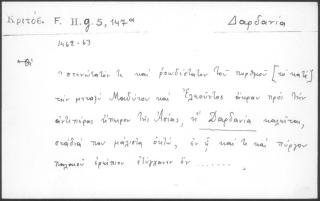 Κριτόβ. F. H. g 5, 147ᵃ Δαρδανία
1462-63
στενώτατόν τε καὶ ῥοωδέστατον τοῦ πορθμοῦ [τὸ κατὰ]
τὴν μεταξὺ Μαδύτου καὶ Ἐλεοῦντος ἄκραν πρὸς τὴν
ἀντιπέρας ἤπειρον τῆς Ἀσίας, ἣ Δαρδανία καλεῖται,
στάδιά που μάλιστα ὀκτώ, ἐν ᾗ καί τι καὶ πύργου
παλαιοῦ ἐρείπιον ἐτύγχανεν ὂν .......